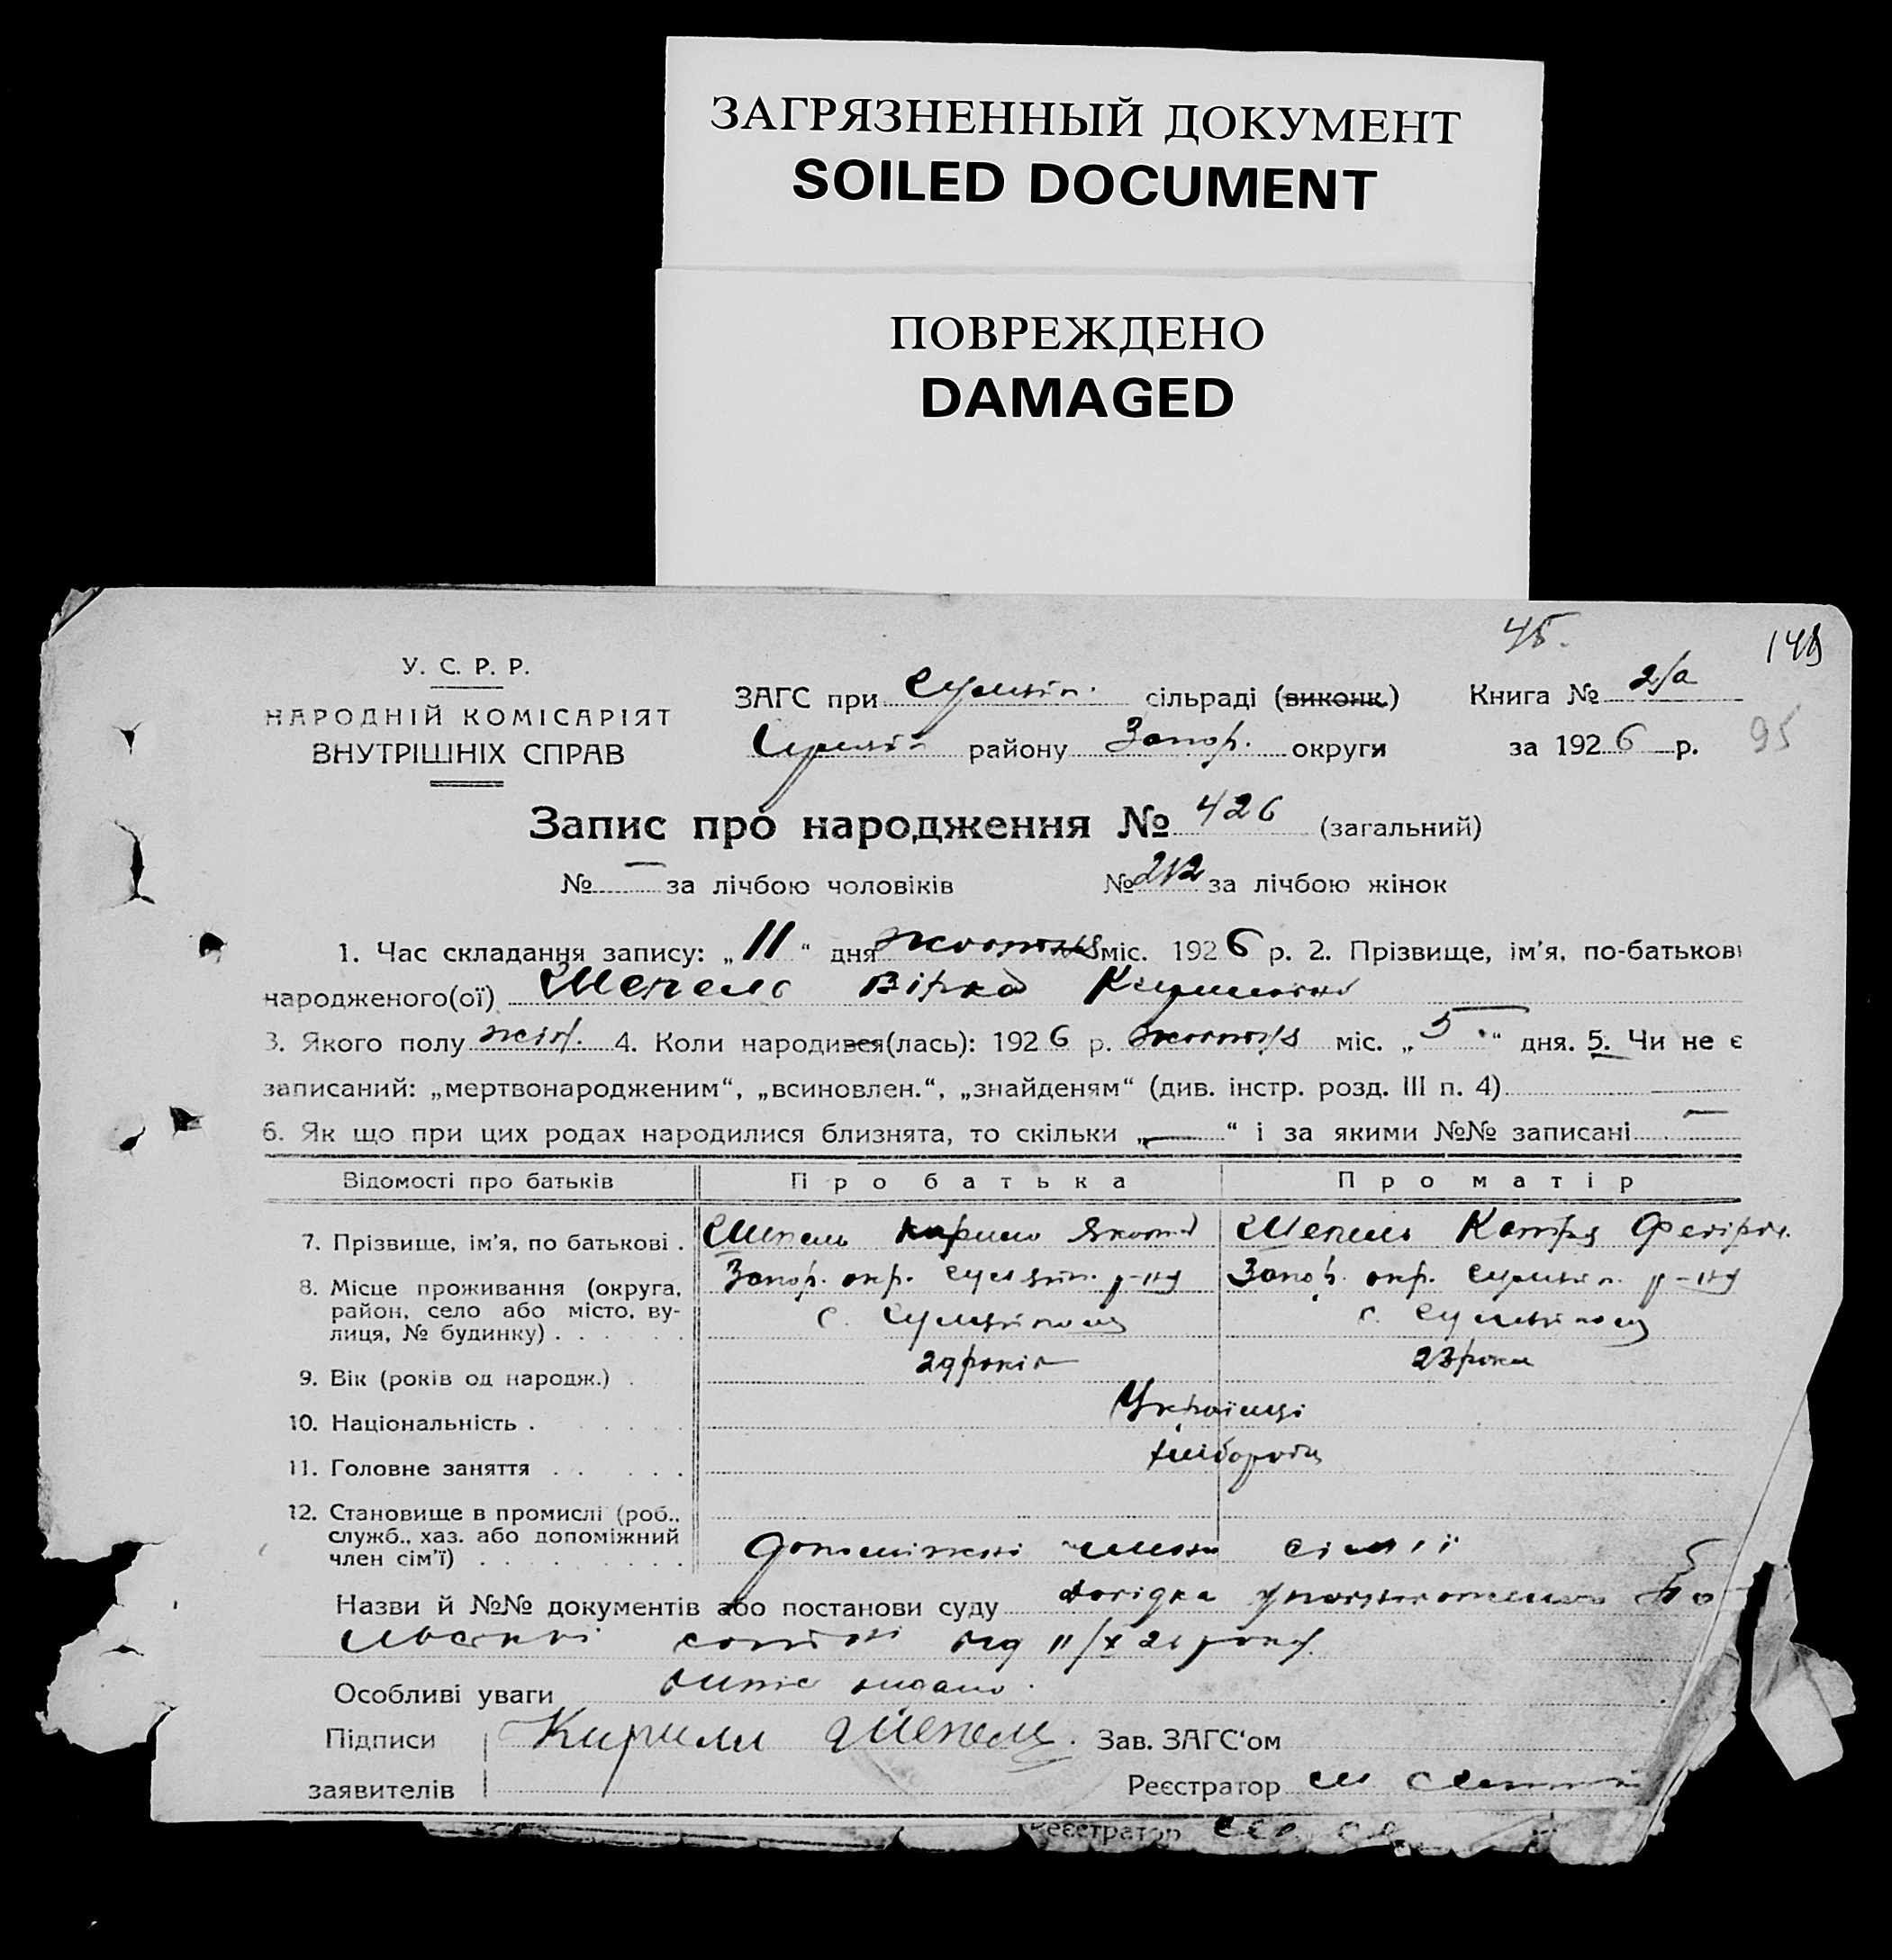 ЗАГРЯЗНЕННЫЙ ДОКУМЕНТ
SOILED DOCUMENT
ПОВРЕЖДЕНО
DAMAGED
45.
149
У. С. Р. Р.
НАРОДНІЙ КОМІСАРІЯТ
ВНУТРІШНІХ СПРАВ
ЗАГС при сільраді (виконк.) Книга № 2/а
району Запор. округи за 1926 р. 95
Запис про народження № 426 (загальний)
№ — за лічбою чоловіків № 212 за лічбою жінок
1. Час складання запису: „11“ дня жовтня міс. 1926 р. 2. Прізвище, ім'я, по-батькові
народженого(ої) Шепель Вірка
3. Якого полу жін. 4. Коли народився(лась): 1926 р. жовтня міс. „5“ дня. 5. Чи не є
записаний: „мертвонародженим“, „всиновлен.“, „знайденям“ (див. інстр. розд. III п. 4) —
6. Як що при цих родах народилися близнята, то скільки „—“ і за якими №№ записані —
Відомості про батьків Про батька Про матір
7. Прізвище, ім'я, по батькові . Шепель Кирило Шепель Катря
8. Місце проживання (округа, район, село або місто, вулиця, № будинку) . Запор. окр. р-ну с. Запор. окр. р-ну с.
9. Вік (років од народж.) . 29 років 23 роки
10. Національність . Українці
11. Головне заняття . хлібороби
12. Становище в промислі (роб., служб., хаз. або допоміжний член сім'ї) . допоміжні члени сім'ї
Назви й №№ документів або постанови суду довідка
від 11/X 26 року.
Особливі уваги витяг видано.
Підписи Кирило Шепель. Зав. ЗАГС'ом
заявителів Реєстратор
Реєстратор